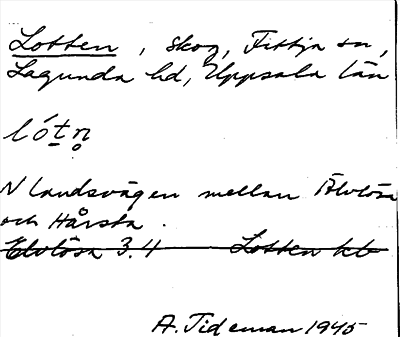 Lotten, skog, Fittja sn,
Lagunda hd, Uppsala län
lót̲n̥
N landsvägen mellan Älvlösa
och Hårsta.
Elvlösa 3.4 Lotten hb
A. Tideman 1945